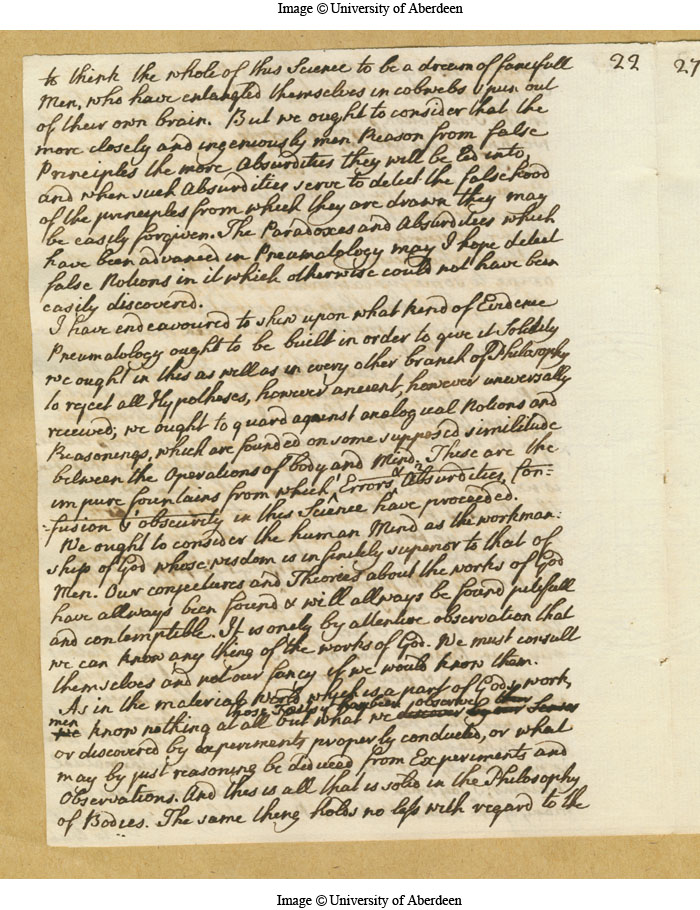 Image © University of Aberdeen
22
27
to think the whole of this Science to be a dream of fancifull
Men, who have entangled themselves in cobwebs spun out
of their own brain. But we ought to consider that the
more closely and ingeniously men Reason from false
Principles the more Absurdities they will be led into,
and when such Absurdities serve to detect the falsehood
of the principles from which they are drawn they may
be easily forgiven. The Paradoxes and Absurdities which
have been advanced in Pneumatology may I hope detect
false Notions in it which otherwise could not have been
easily discovered.
I have endeavoured to shew upon what kind of Evidence
Pneumatology ought to be built in order to give it Solidity
we ought in this as well as in every other branch of Philosophy
to reject all Hypotheses, however ancient, however universally
received; we ought to guard against analogical Notions and
Reasonings, which are founded on some supposed similitude
between the Operations of body and Mind. These are the
impure fountains from which Errors & Absurdities, Con=
=fusion & obscurity in this Science have proceeded.
We ought to consider the human Mind as the workman:
ship of God whose wisdom is infinitely superior to that of
Men. Our conjectures and Theories about the works of God
have allways been found & will allways be found pitifull
and contemptible. It is onely by attentive observation that
we can know any thing of the works of God. We must consult
themselves and not our fancy if we would know them.
As in the material World which is a part of Gods work,
men know nothing at all but what we discover by our Senses
or discovered by experiments properly conducted, or what
may by just reasoning be deduced from Experiments and
Observations. And this is all that is solid in the Philosophy
of Bodies. The same thing holds no less with regard to the
Image © University of Aberdeen